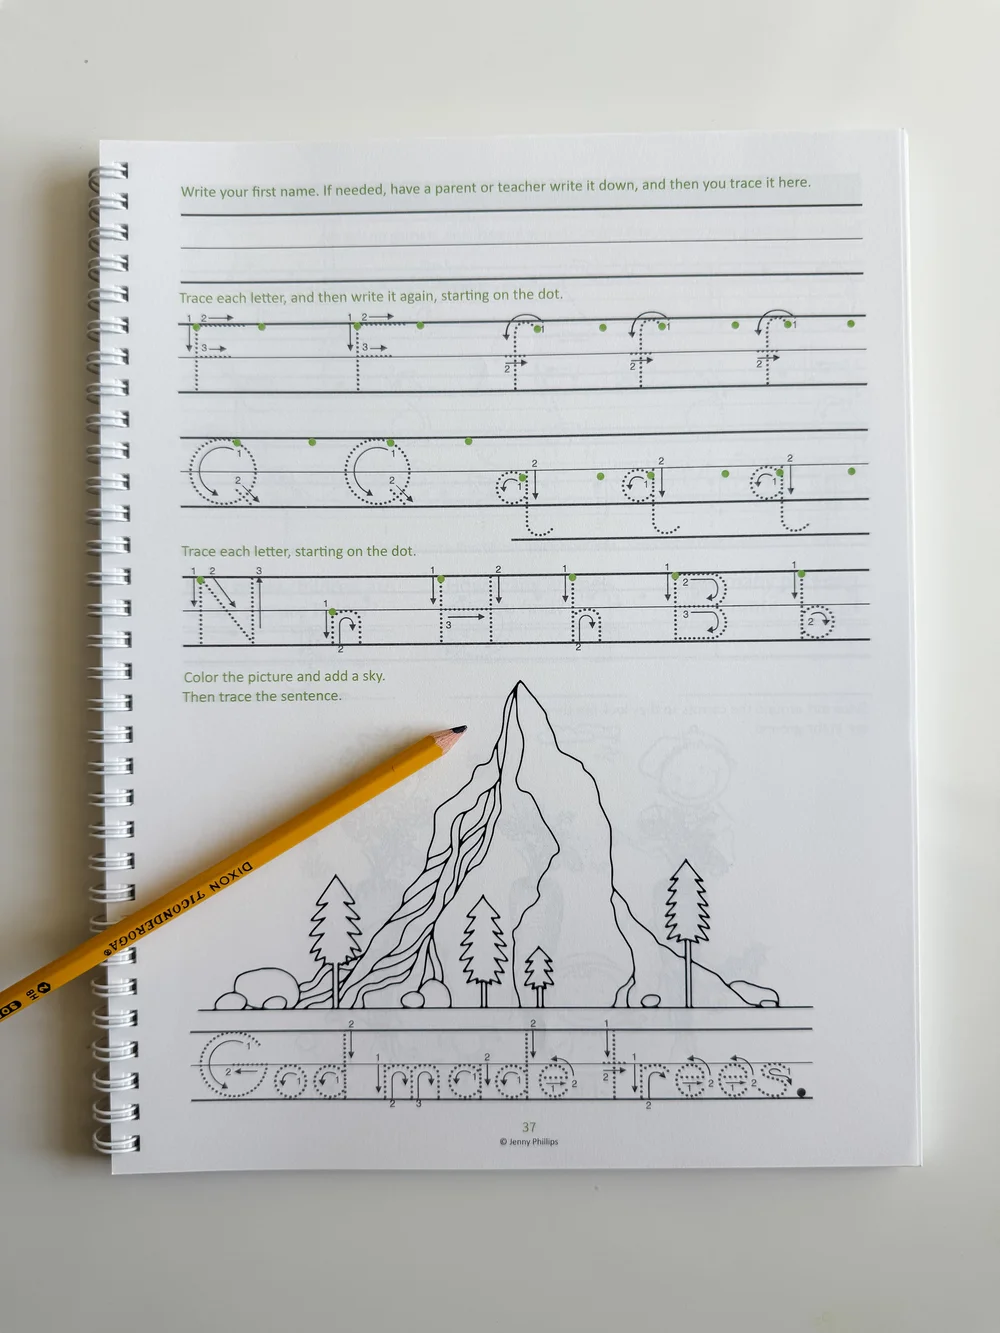 Write your first name. If needed, have a parent or teacher write it down, and then you trace it here.
Trace each letter, and then write it again, starting on the dot.
1 2 1 2 1 1 1
3 3 2 2 2
F F f f f
Q Q q q q
1 2 1 2 1 2 1 2 1 2
Trace each letter, starting on the dot.
1 2 3 1 1 2 1 1 2 1
N n H h B b
2 3 2 3 2
Color the picture and add a sky.
Then trace the sentence.
DIXON TICONDEROGA®
2 HB
God made trees.
37
© Jenny Phillips